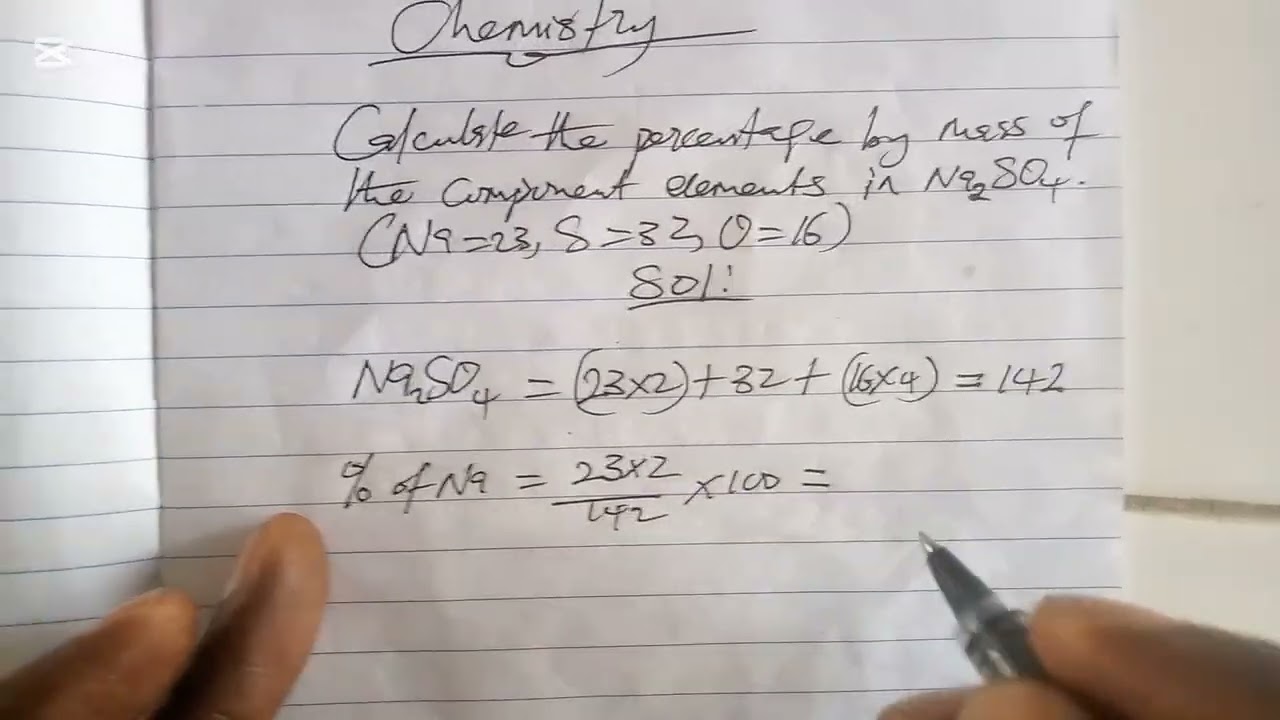 Chemistry
Calculate the percentage by mass of
the component elements in Na₂SO₄.
(Na=23, S=32, O=16)
Sol:
Na₂SO₄ = (23×2)+32+(16×4) = 142
% of Na = 23×2/142 ×100 =